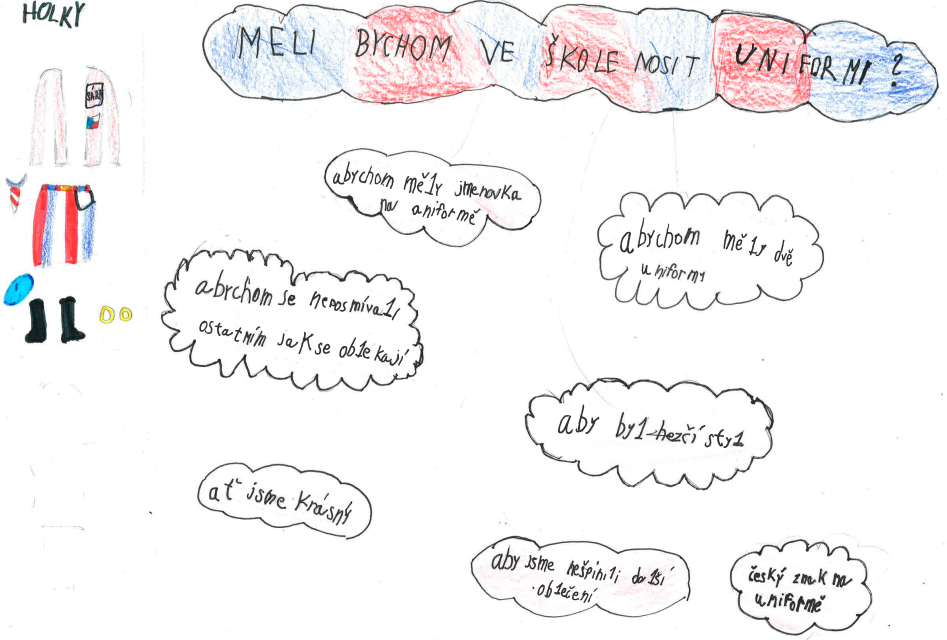 HOLKY
MĚLI BYCHOM VE ŠKOLE NOSIT UNIFORMI?
SÁRA
abychom měly jmenovka
na aniformě
abychom měly dvě
uniformy
abrchom se neposmívali
ostatním jak se oblekají
aby byl hezčí styl
ať jsme krásný
aby jsme nešpinili další
oblečení
český znak na
uniformě